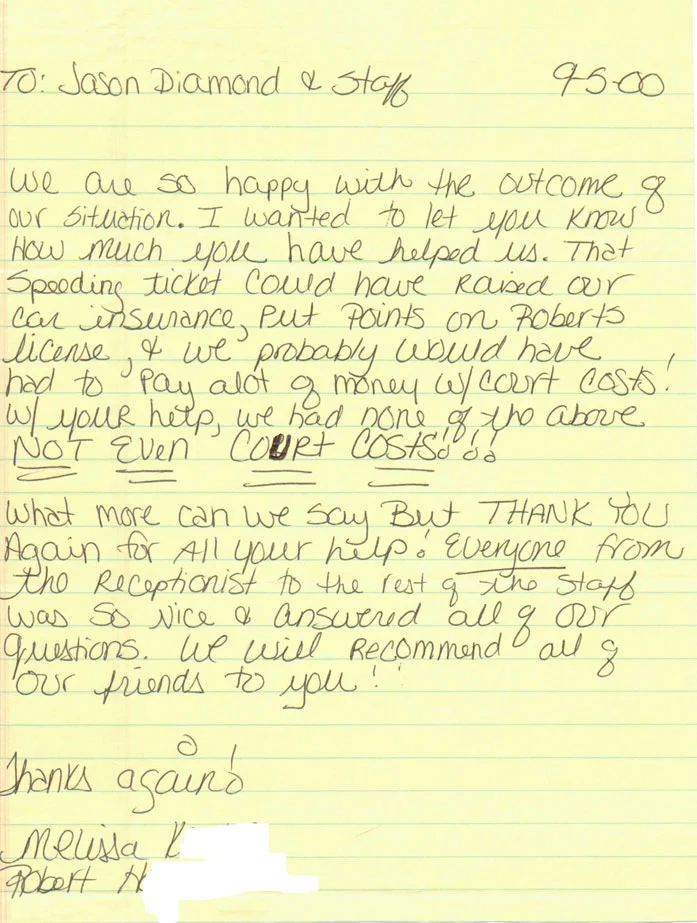 TO: Jason Diamond & Staff 9-5-00
We are so happy with the outcome of
our situation. I wanted to let you know
How much you have helped us. That
Speeding ticket could have raised our
car insurance, put points on Roberts
license, & we probably would have
had to pay alot of money w/ court costs!
w/ your help, we had none of the above
NOT Even COURT COSTS!!!
What more can we say But THANK YOU
Again for All your help! Everyone from
the Receptionist to the rest of the staff
was so nice & answered all of our
questions. We will Recommend all of
our friends to you!!
Thanks again!
Melissa K
Robert H